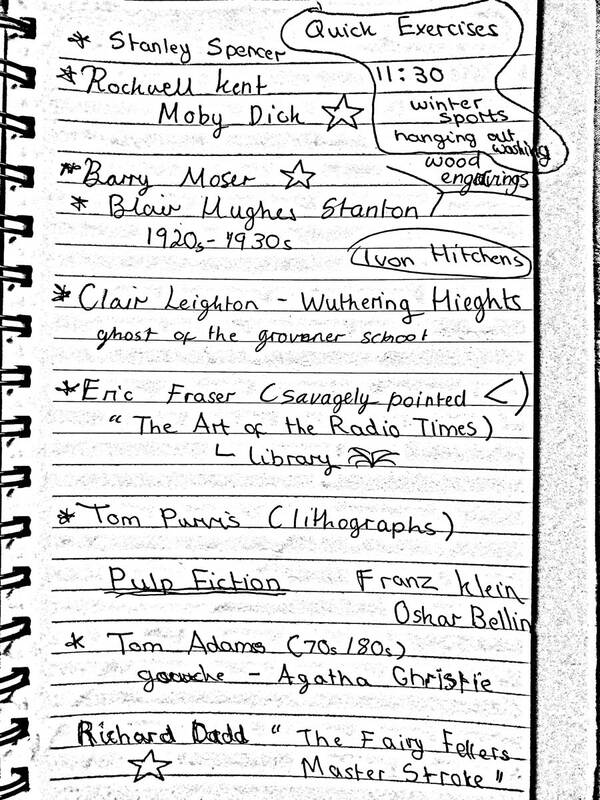 Quick Exercises
* Stanley Spencer
* Rockwell Kent
11:30
Moby Dick ☆
winter
sports
hanging out
washing
* Barry Moser ☆
wood
engravings
* Blair Hughes Stanton
1920s - 1930s
Ivon Hitchens
* Clair Leighton - Wuthering Hieghts
ghost of the grovener school
* Eric Fraser (savagely pointed <)
" The Art of the Radio Times)
Library
* Tom Purvis (lithographs)
Pulp Fiction
Franz Klein
Oskar Bellin
* Tom Adams (70s/80s)
gouache - Agatha Christie
Richard Dadd " The Fairy Fellers
☆ Master Stroke "